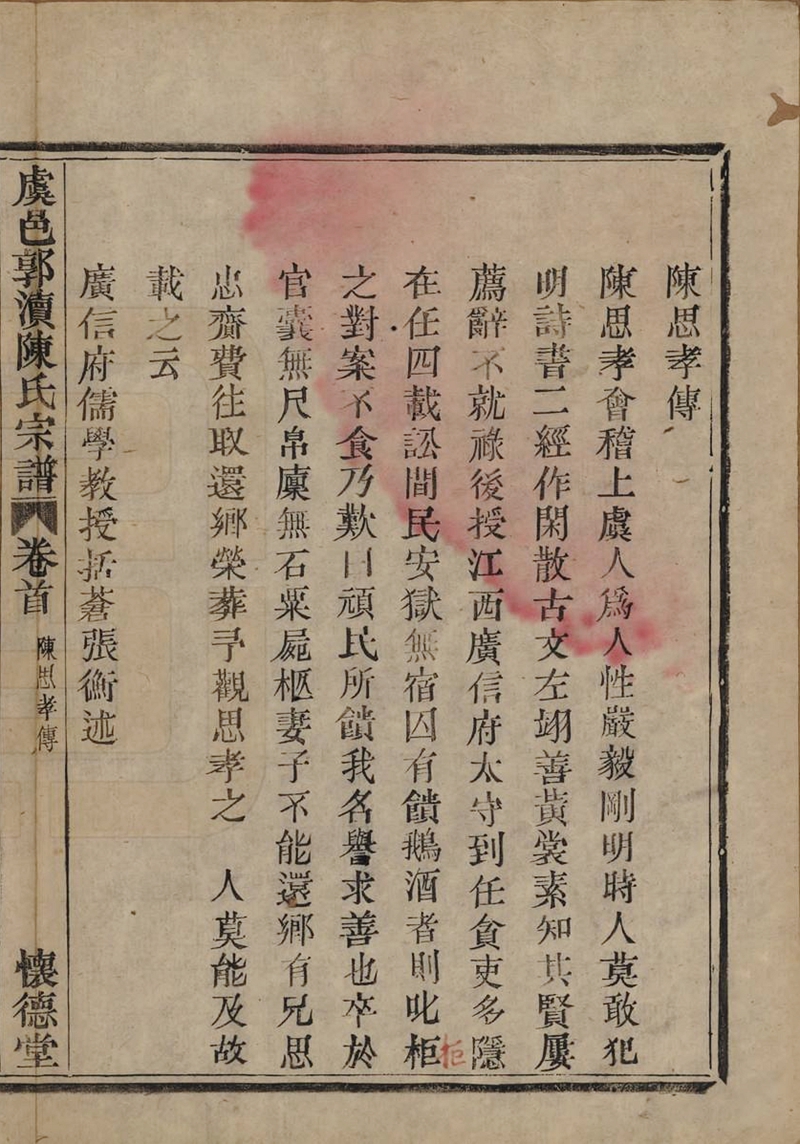 陳思孝傳
陳思孝會稽上虞人爲人性嚴毅剛明時人莫敢犯
明詩書二經作閑散古文左翊善黃裳素知其賢屢
薦辭不就祿後授江西廣信府太守到任貪吏多隱
在任四載訟間民安獄無宿囚有饋鵝酒者則叱柜
拒
之對案不食乃歎曰頑民所饋我名譽求善也卒於
官囊無尺帛廪無石粟屍柩妻子不能還鄉有兄思
忠齎費往取還鄉榮葬予觀思孝之 人莫能及故
載之云
廣信府儒學教授括蒼張衡述
虞邑郭瀆陳氏宗譜 卷首 陳思孝傳 懷德堂